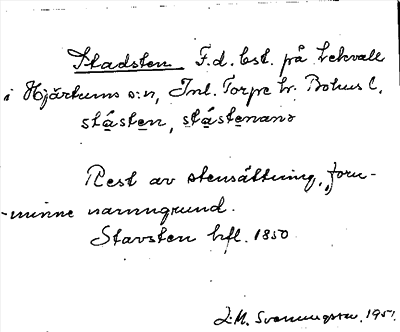 Stadsten F.d. bst. på Lekvall
i Hjärtums s:n, Inl. Torpe hr. Bohus l.
stásten, stástenans
Rest av stensättning, forn-
-minne namngrund.
Stavsten hfl. 1850
J.M. Svenningsson, 1951.